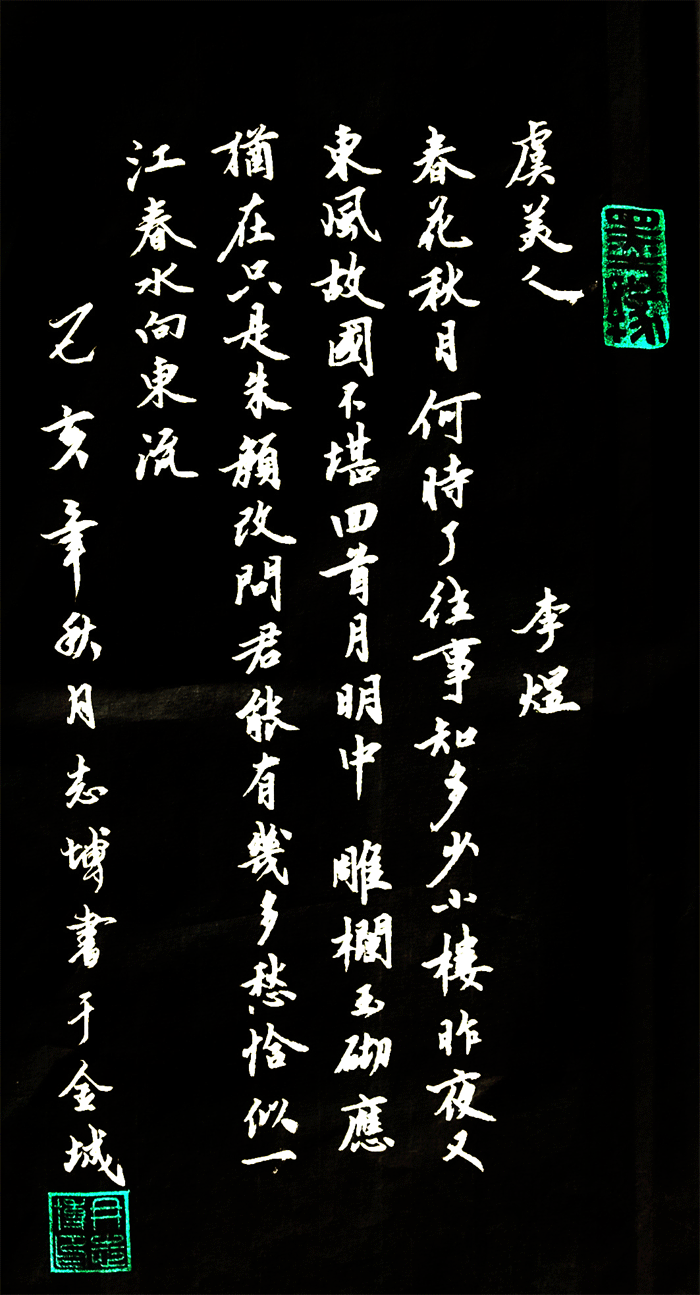 虞美人 李煜
春花秋月何時了往事知多少小樓昨夜又
東風故國不堪回首月明中 雕欄玉砌應
猶在只是朱顏改問君能有幾多愁恰似一
江春水向東流
己亥年秋月志博書于金城